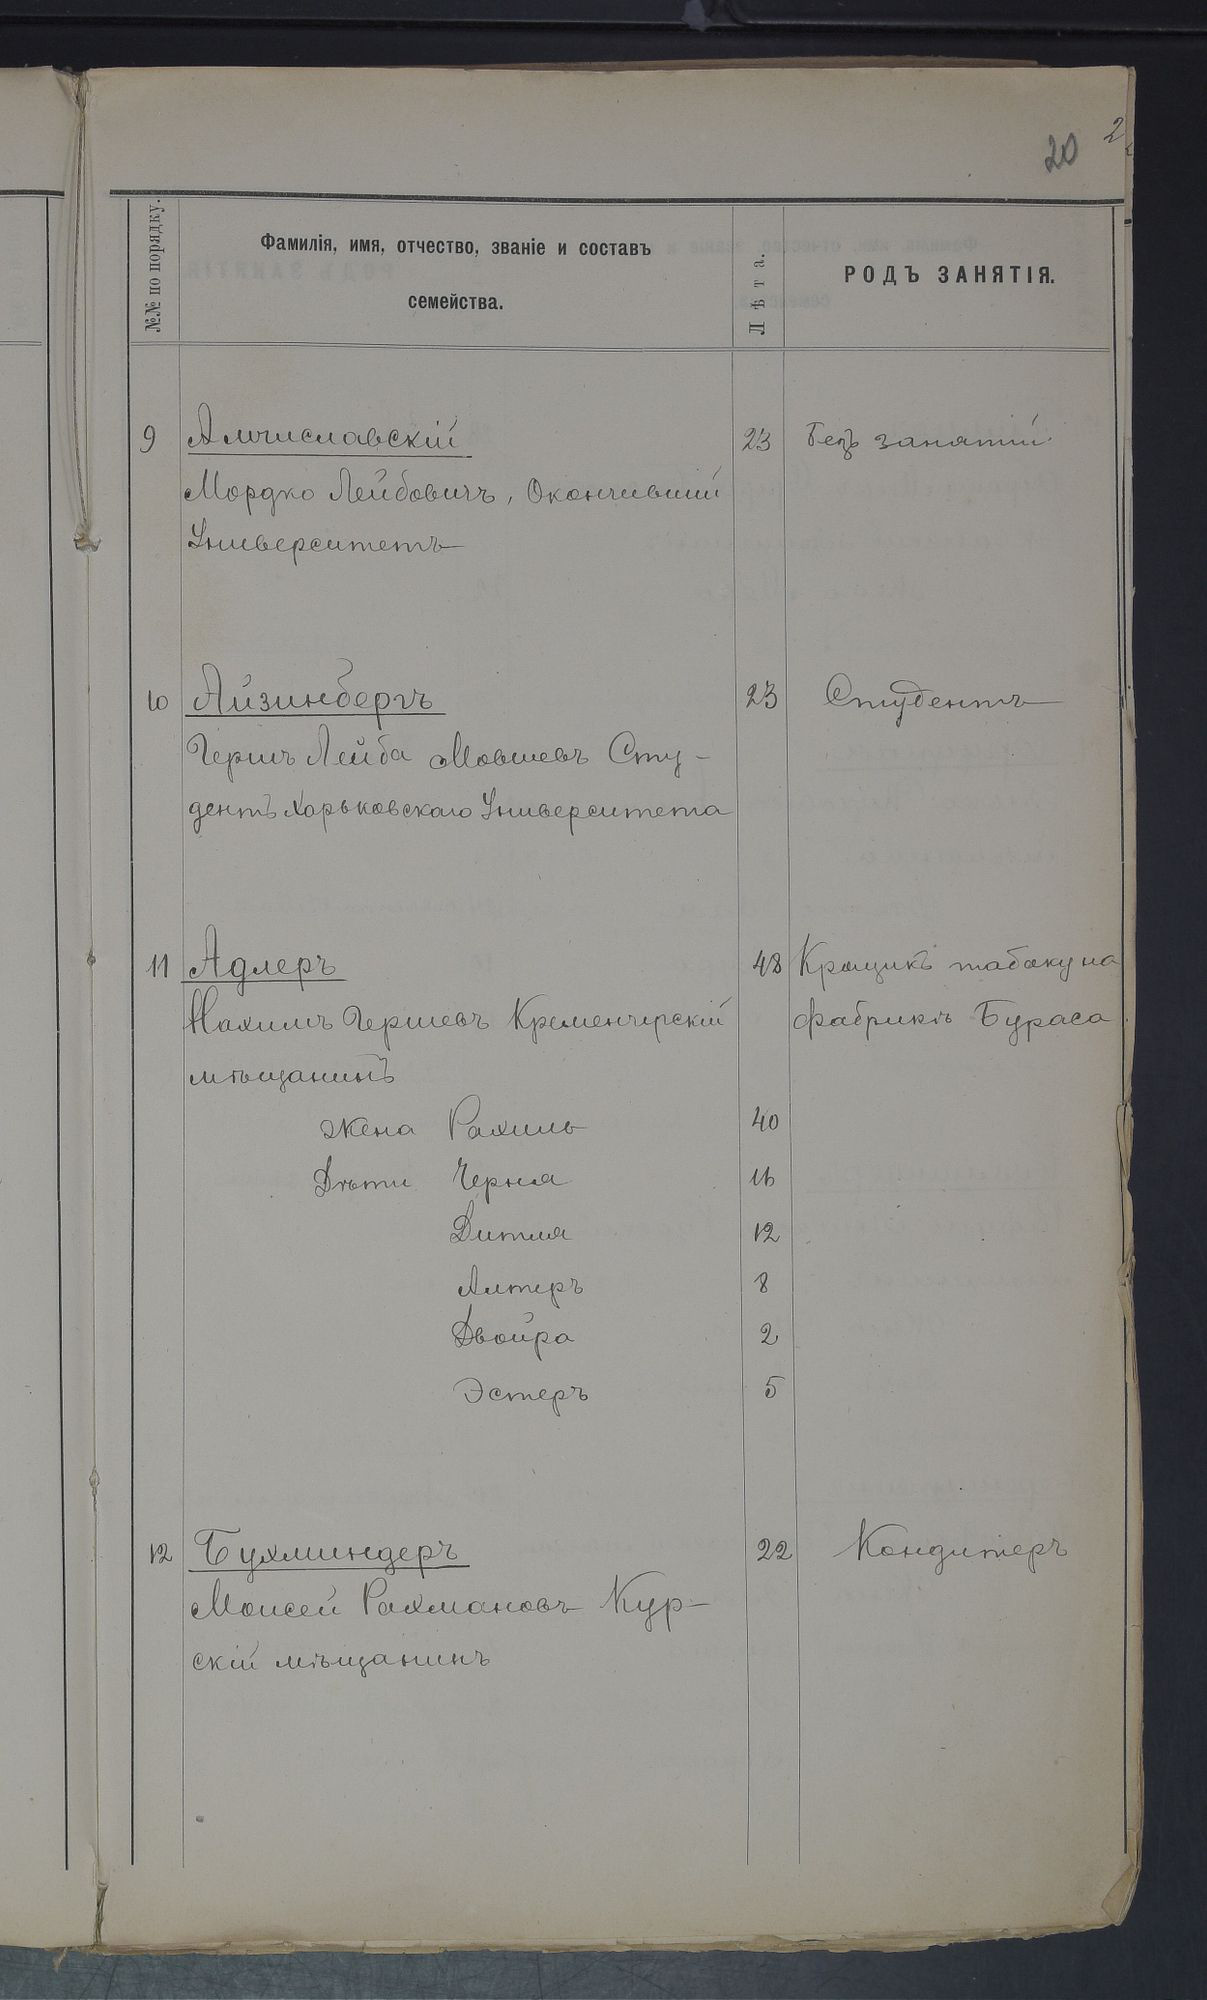 20
2
№№ по порядку.
Фамилія, имя, отчество, званіе и составъ
семейства.
Лѣта.
РОДЪ ЗАНЯТІЯ.
9 Амчиславскій 23 Безъ занятій
Мордко Лейбовичъ, Окончившій
Университетъ
10 Айзинбергъ 23 Студентъ
Гершъ Лейба Мовшевъ Сту-
дентъ Харьковскаго Университета
11 Адлеръ 48 Крощикъ табаку на
Нахимъ Гершевъ Кременчугскій фабрикѣ Бураса
мѣщанинъ
жена Рахиль 40
Дѣти Черня 16
Дитля 12
Алтеръ 8
Двойра 2
Эстеръ 5
12 Бухминдеръ 22 Кондитеръ
Моисей Рахмановъ Кур-
скій мѣщанинъ